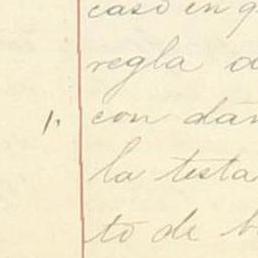 caso en q
regla d
1. con dan
la testa
to de b